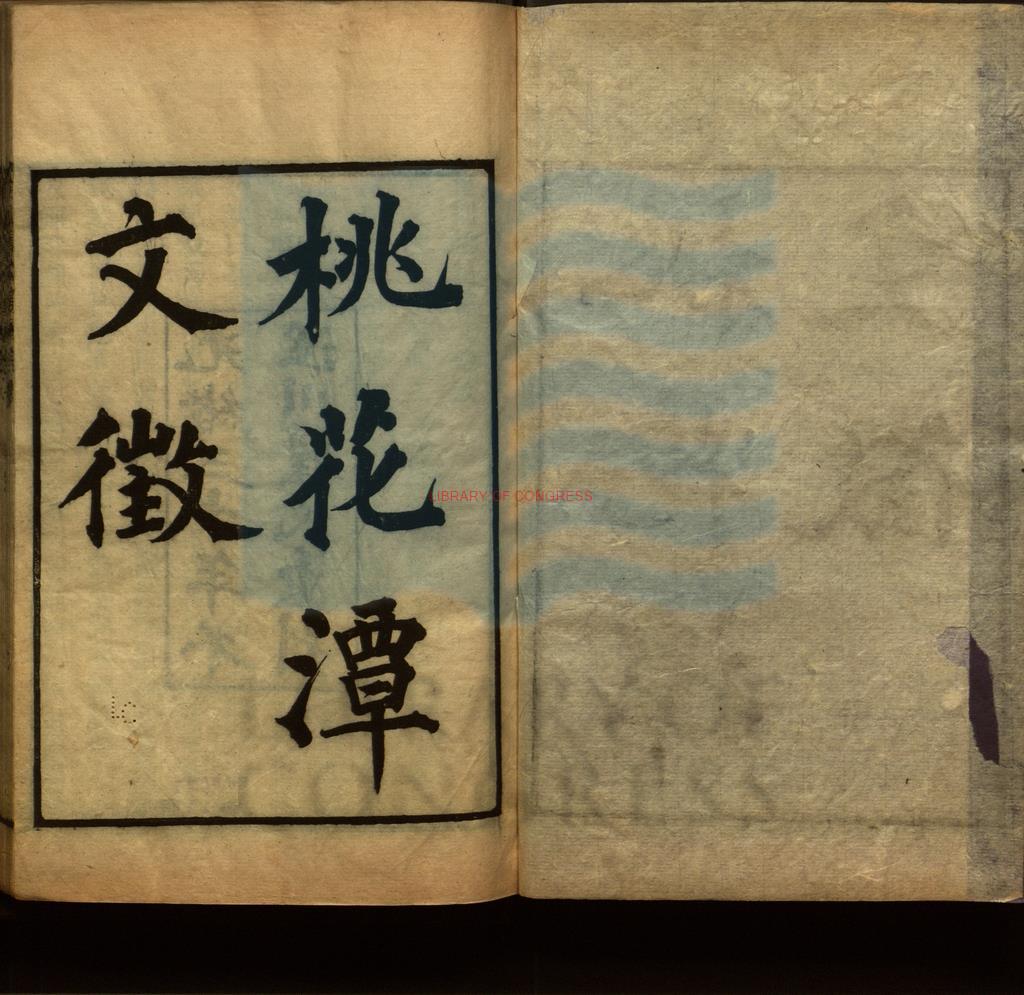 桃花潭
文徵
LIBRARY OF CONGRESS
LC